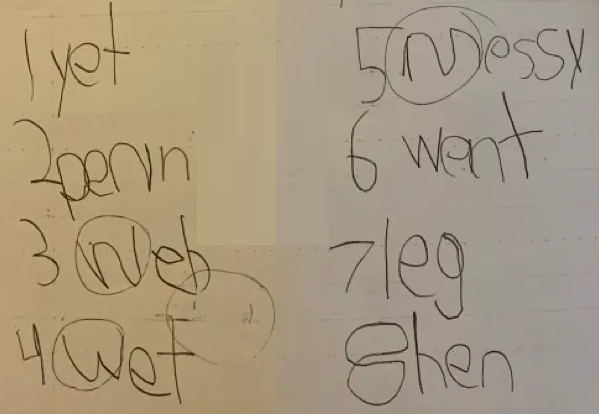 1 yet
2 penn
3 Web
4 Wet
5 Messy
6 went
7 leg
8 hen